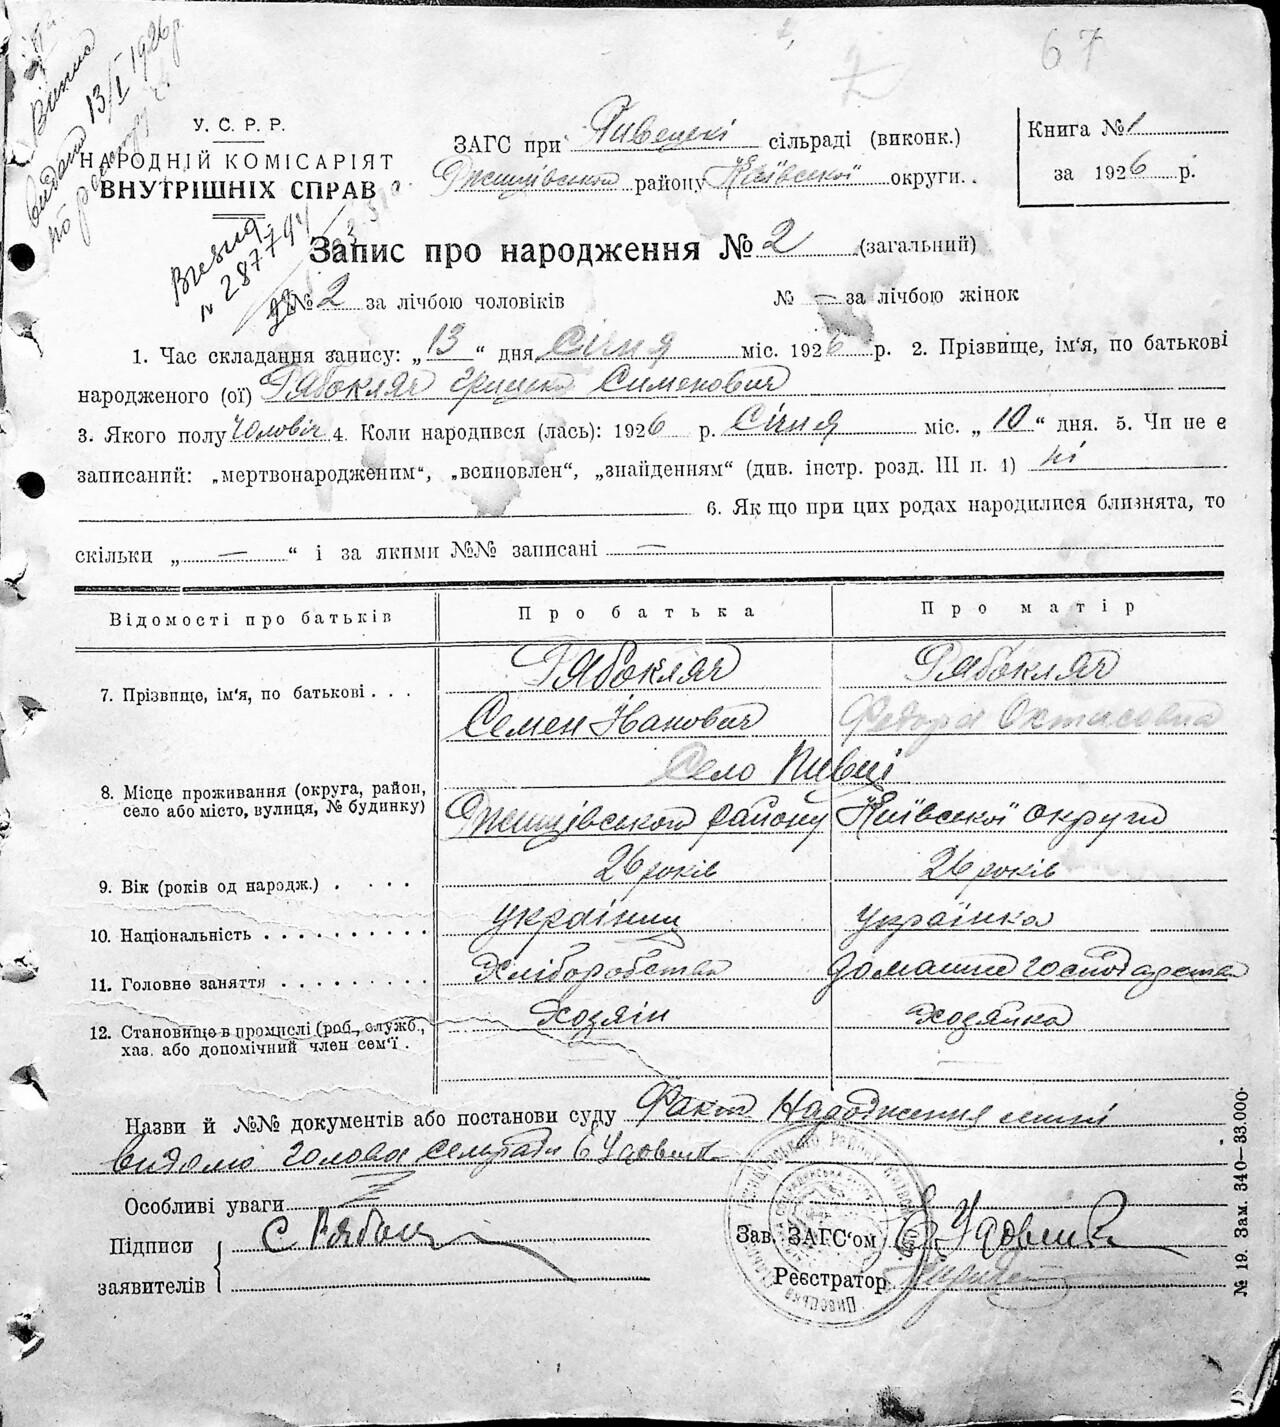 67
2
Виписа
видана 13/I 1926 р.
по
У. С. Р. Р.
НАРОДНІЙ КОМІСАРІЯТ
ВНУТРІШНІХ СПРАВ
№ 287794
ЗАГС при Пивецкі сільраді (виконк.)
Ржищівського району Київської округи.
Книга № 1
за 1926 р.
Запис про народження № 2 (загальний)
№ 2 за лічбою чоловіків № — за лічбою жінок
1. Час складання запису: „13“ дня Січня міс. 1926 р. 2. Прізвище, ім'я, по батькові
народженого (ої) Рябокляч Грицько Сименович
3. Якого полу Чоловіч 4. Коли народився (лась): 1926 р. Січня міс. „10“ дня. 5. Чи не є
записаний: „мертвонародженим“, „всиновлен“, „знайденням“ (див. інстр. розд. III п. 1) ні
6. Як що при цих родах народилися близнята, то
скільки „ — “ і за якими №№ записані —
Відомості про батьків Про батька Про матір
7. Прізвище, ім'я, по батькові . . . Рябокляч Рябокляч
Семен Іванович Федора
Село Пивці
8. Місце проживання (округа, район, село або місто, вулиця, № будинку) Ржищівського району Київської округи
9. Вік (років од народж.) . . . . 26 років 26 років
10. Національність . . . . . . . . . . українец українка
11. Головне заняття . . . . . . . . . Хліборобства домашне господарства
12. Становище в промислі (роб., служб., хаз. або допомічний член сем'ї . Хозяін Хозяйка
Назви й №№ документів або постанови суду Факт Народження мині
видомо голова сельради Є Удовик
Особливі уваги
Підписи заявителів С Рябокл
Зав. ЗАГС'ом Є Удовик
Реєстратор
№ 19. Зам. 340—33.000.